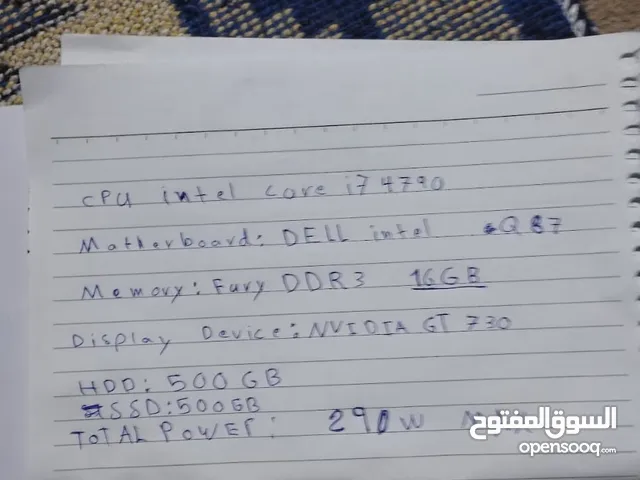 CPU intel core i7 4790
Motherboard: DELL intel Q87
Memory: Fury DDR3 16GB
Display Device: NVIDIA GT 730
HDD: 500 GB
SSD: 500GB
TOTAL POWER: 290W
السوق المفتوح
opensooq.com